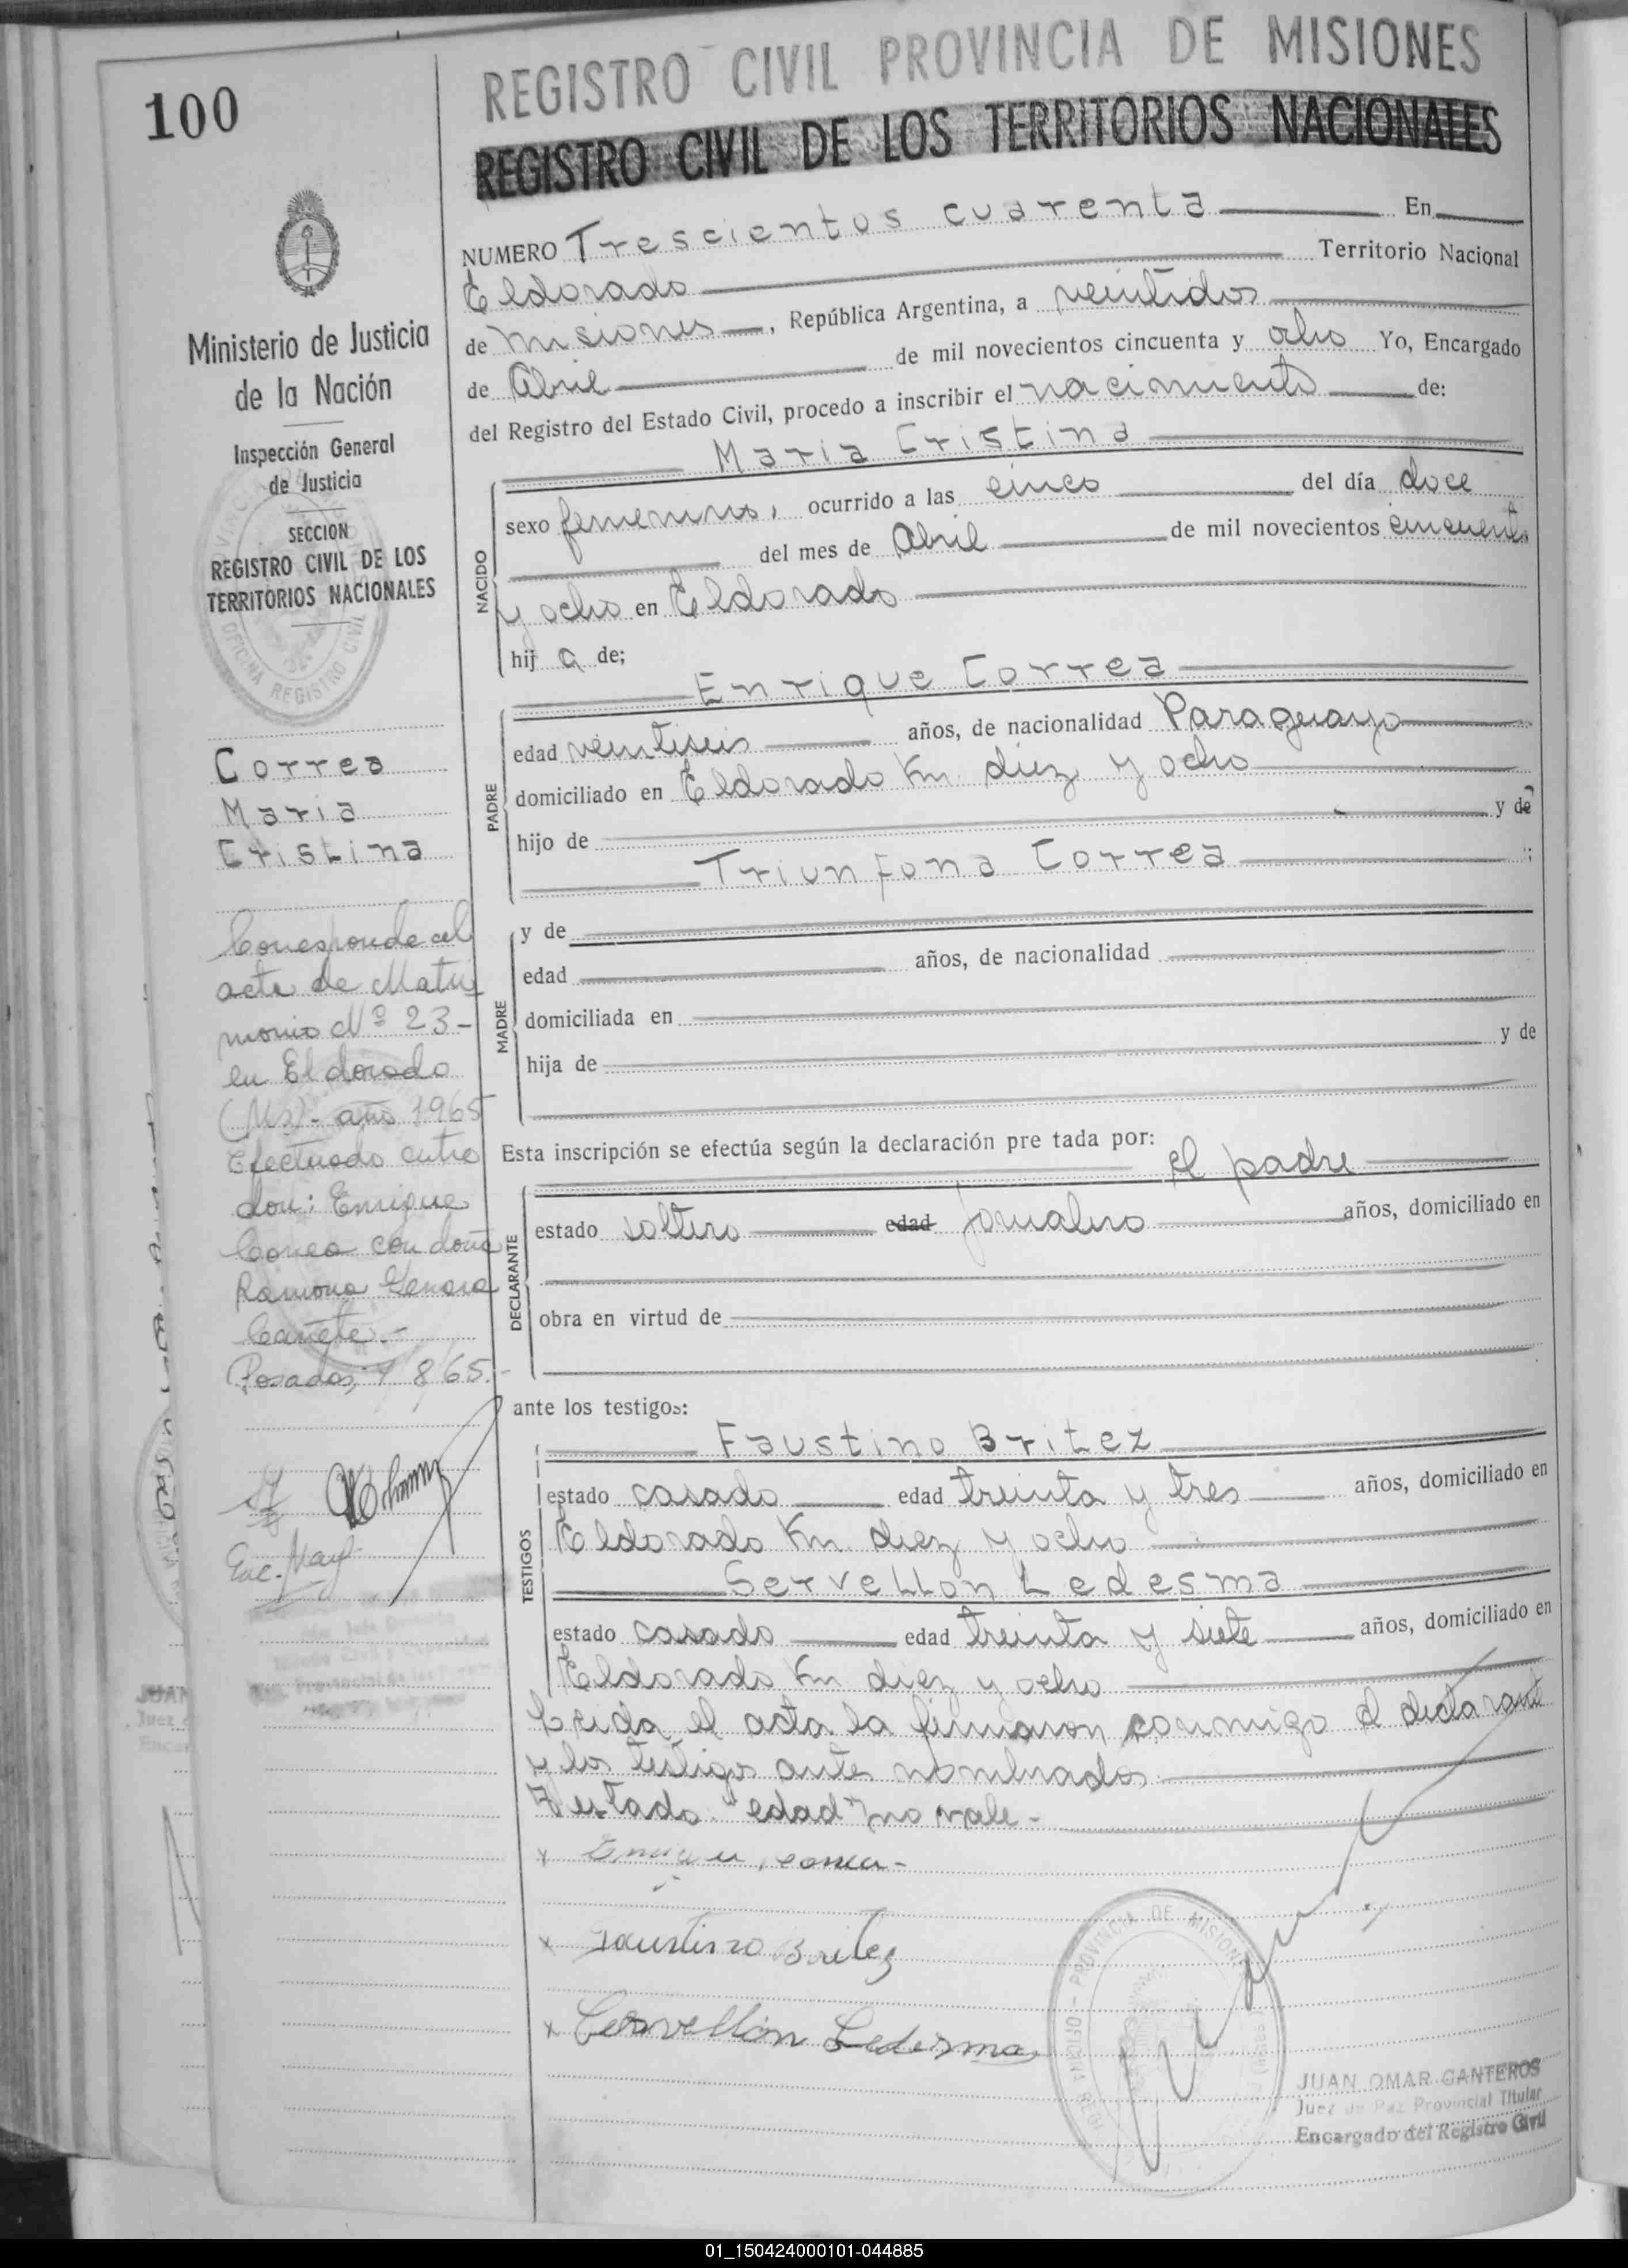 REGISTRO CIVIL PROVINCIA DE MISIONES
REGISTRO CIVIL DE LOS TERRITORIOS NACIONALES
100
Ministerio de Justicia
de la Nación
Inspección General
de Justicia
SECCION
REGISTRO CIVIL DE LOS
TERRITORIOS NACIONALES
OFICINA REGISTRO CIVIL
Correa
Maria
Cristina
Corresponde al
acta de Matri
monio Nº 23-
en Eldorado
(Ms)- año 1965
Efectuado entre
don: Enrique
Correa con doña
Ramona Genara
Cañete.-
Posadas, 9 8/65.-
Enc. May
NUMERO Trescientos cuarenta En
Eldorado Territorio Nacional
de Misiones, República Argentina, a veintidos
de Abril de mil novecientos cincuenta y ocho Yo, Encargado
del Registro del Estado Civil, procedo a inscribir el nacimiento de:
Maria Cristina
NACIDO
sexo femenino, ocurrido a las cinco del día doce
del mes de Abril de mil novecientos cincuenta
y ocho en Eldorado
hij a de;
Enrique Correa
PADRE
edad veintiseis años, de nacionalidad Paraguayo
domiciliado en Eldorado Km diez y ocho
hijo de y de
Triunfona Correa ;
MADRE
y de
edad años, de nacionalidad
domiciliada en
hija de y de
Esta inscripción se efectúa según la declaración pre tada por:
el padre
DECLARANTE
estado soltero edad jornalero años, domiciliado en
obra en virtud de
ante los testigos:
TESTIGOS
Faustino Britez
estado casado edad treinta y tres años, domiciliado en
Eldorado Km diez y ocho
Servellon Ledesma
estado casado edad treinta y siete años, domiciliado en
Eldorado Km diez y ocho
Leida el acta la firmaron conmigo el declarante
y los testigos antes nombrados
Testado "edad" no vale-
x Enrique correa-
x Faustino Britez
x Cervellon Ledesma
PROVINCIA DE MISIONES
JUAN OMAR CANTEROS
Juez de Paz Provincial Titular
Encargado del Registro Civil
01_150424000101-044885